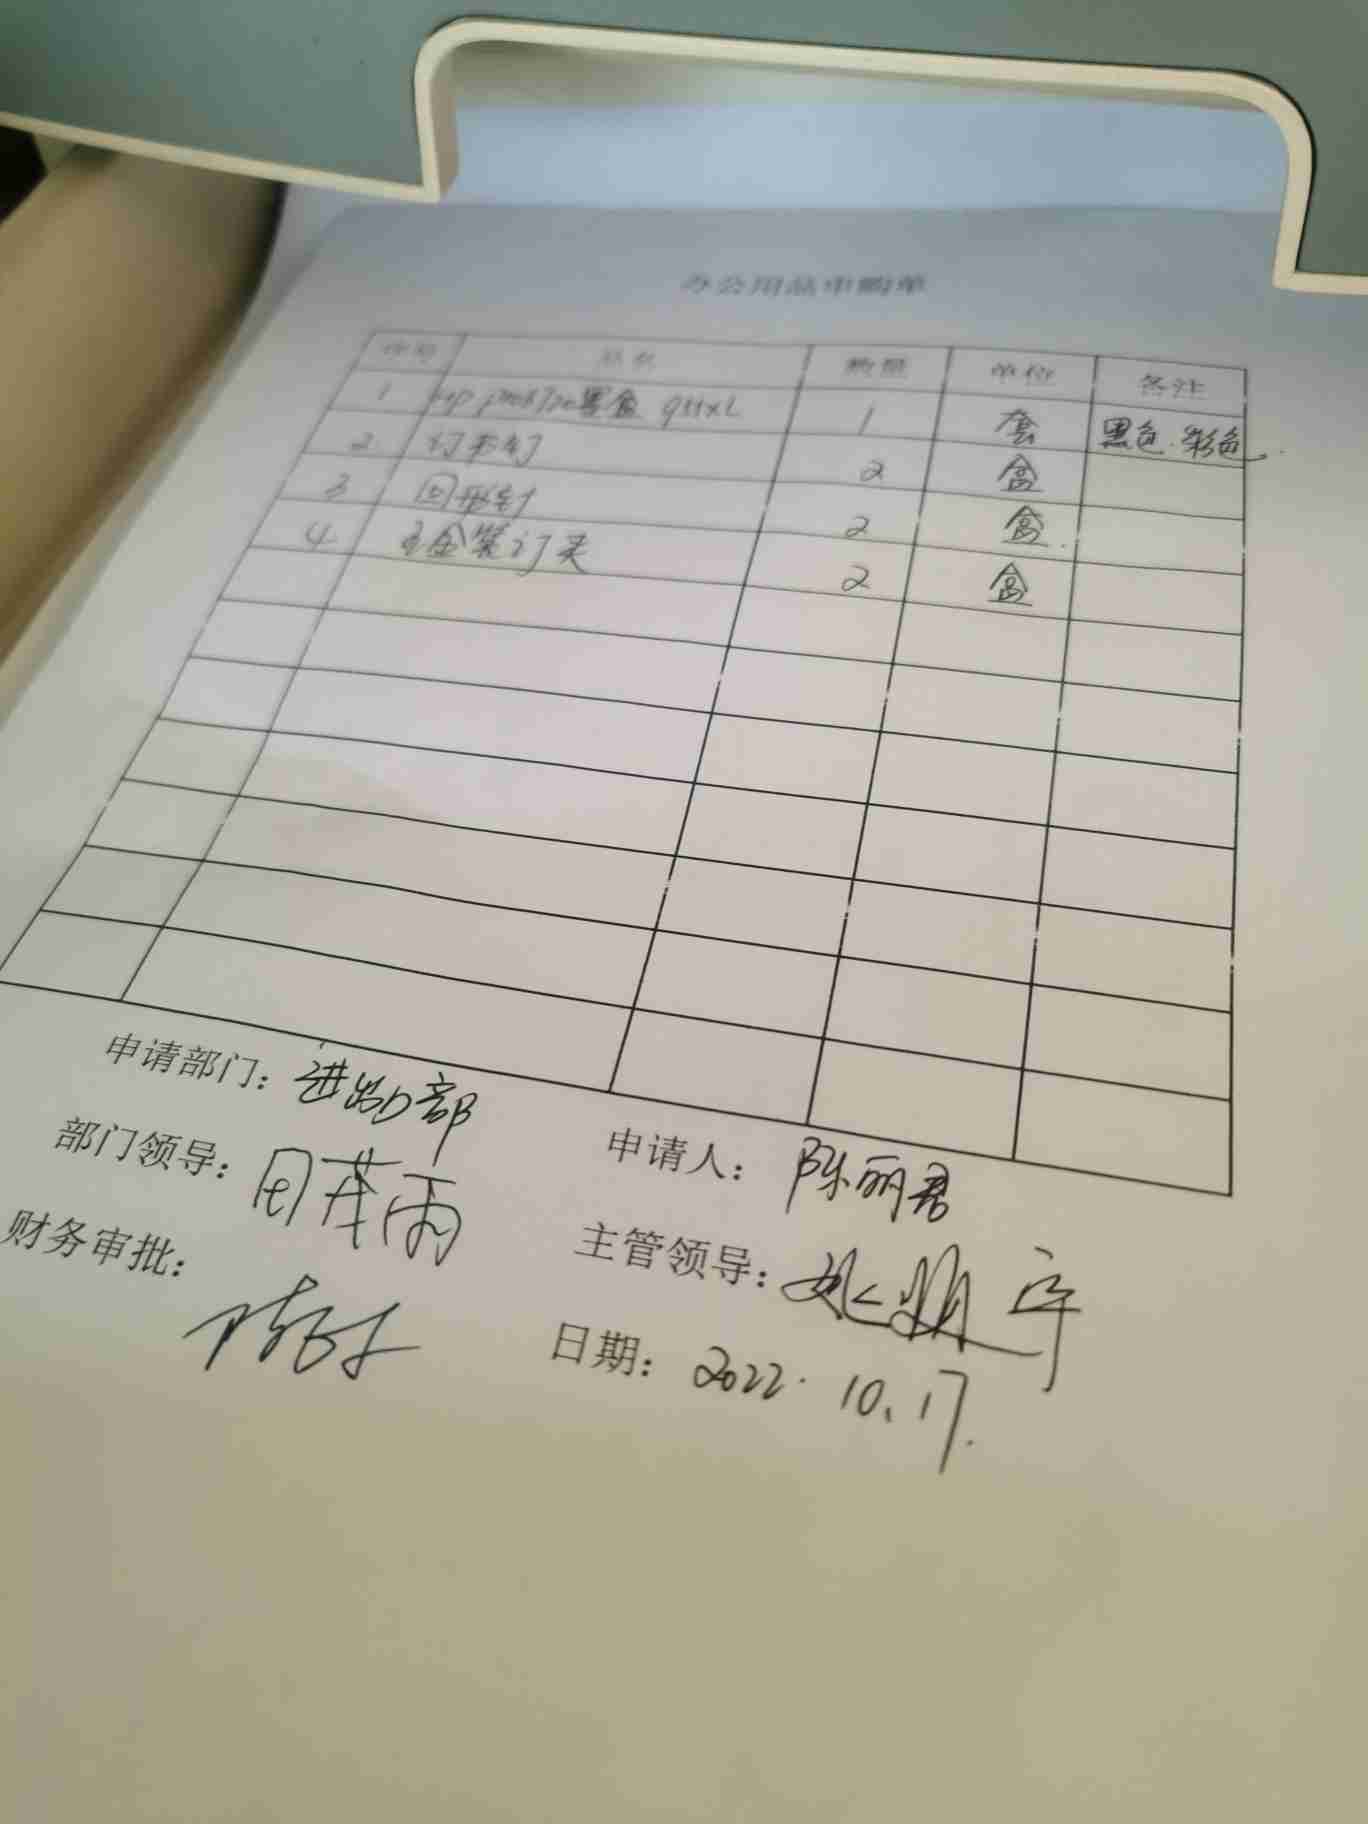 办公用品申购单
序号 品名 数量 单位 备注
1 墨盒 1 套 黑色.彩色.
2 订书钉 2 盒
3 回形针 2 盒.
4 订夹 2 盒
申请部门：进出口部
申请人：陈丽君
部门领导：
主管领导：
财务审批：
日期：2022.10.17.